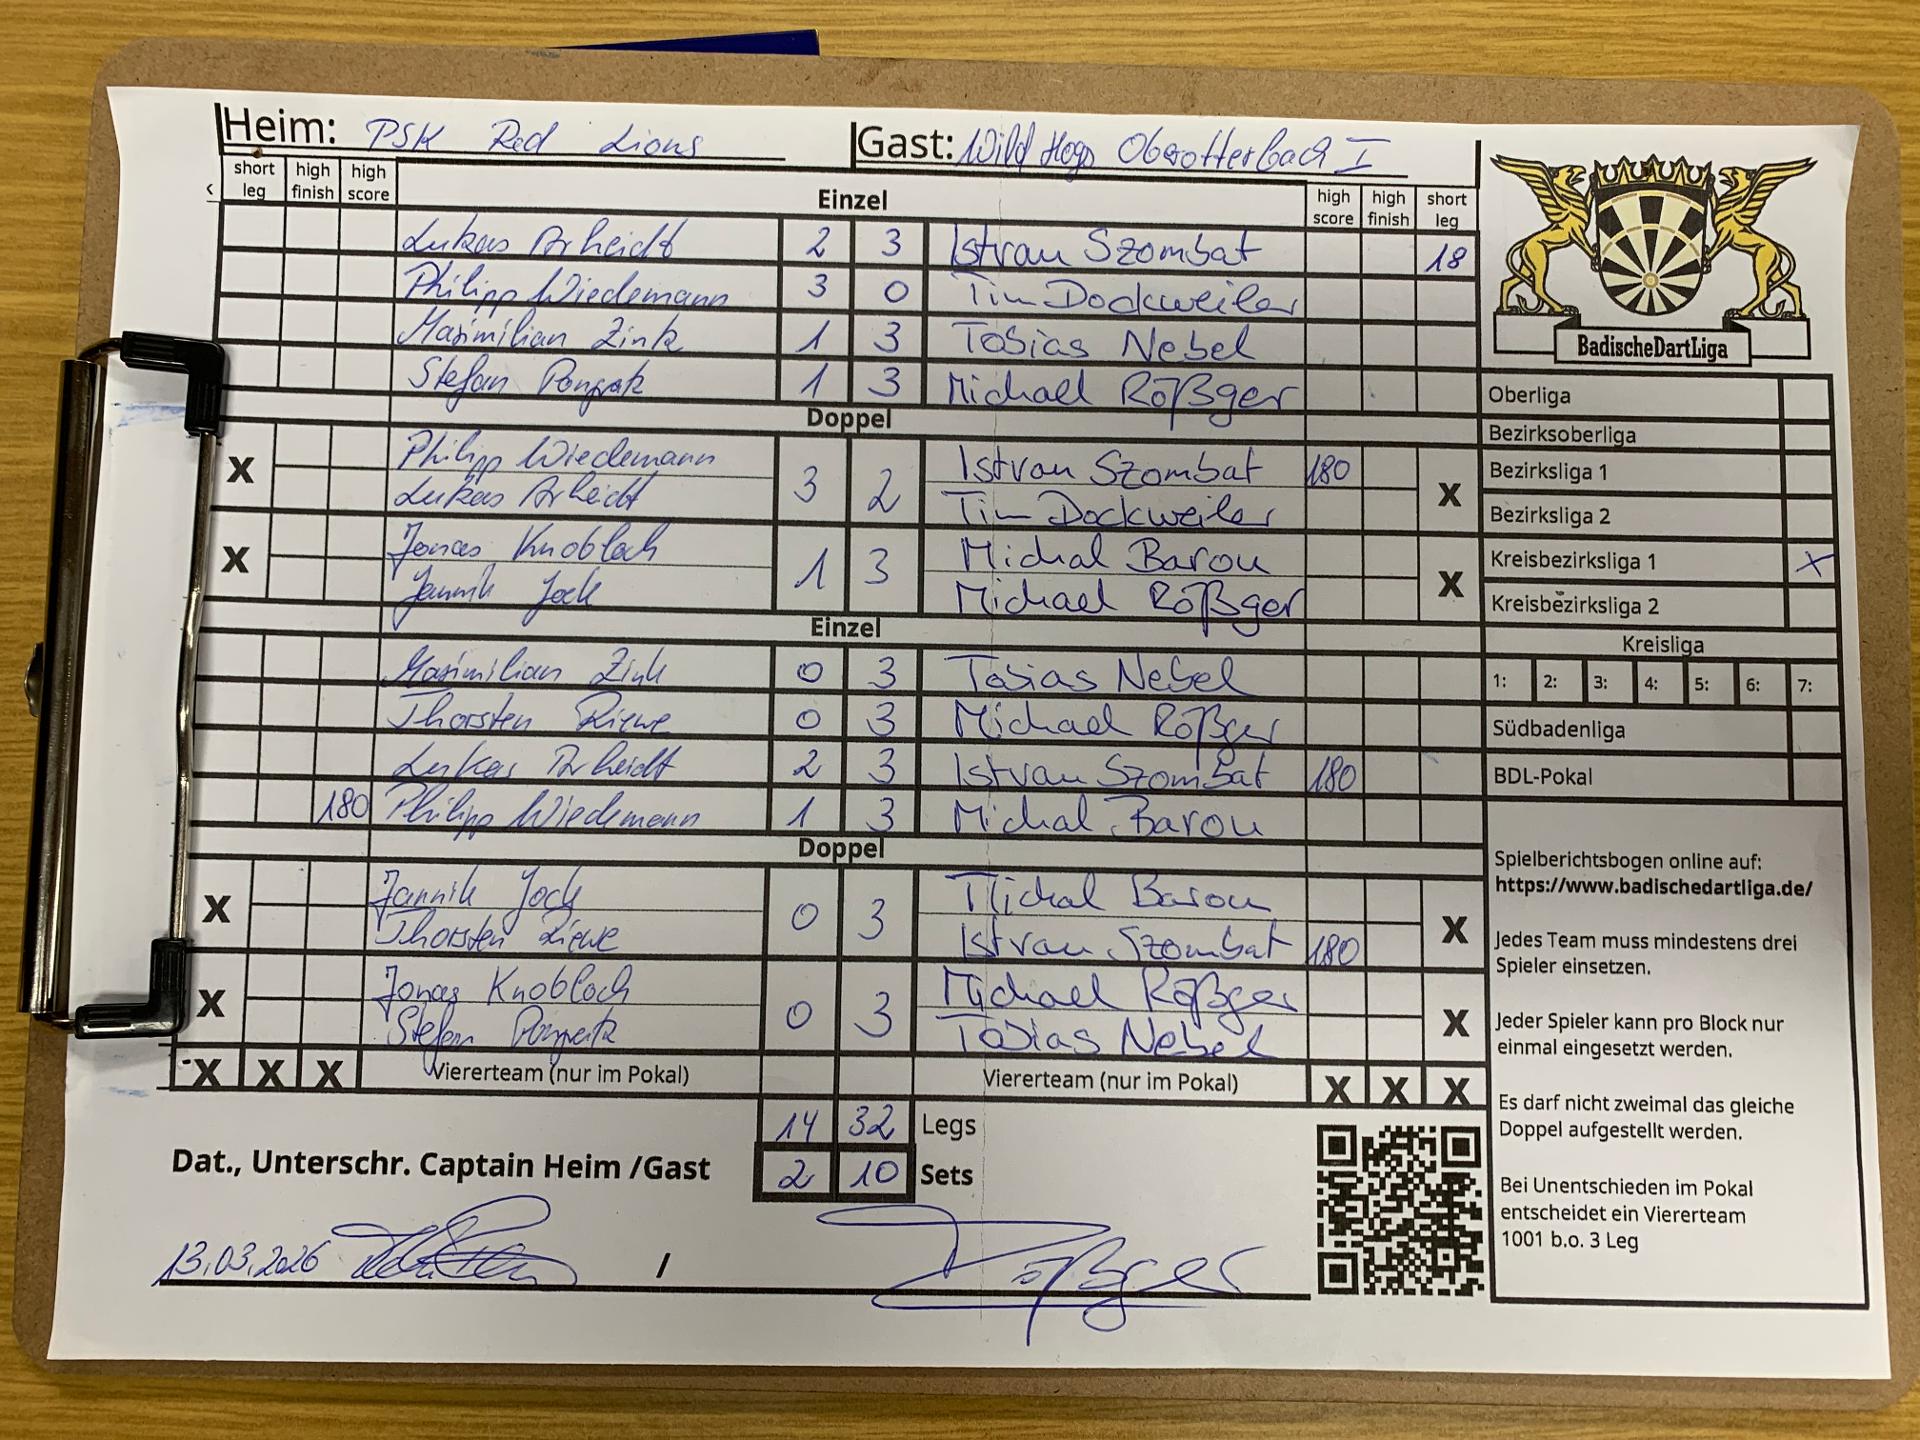 Heim: PSK Red Lions Gast: Wild Hogs Oberotterbach I
short leg high finish high score Einzel high score high finish short leg
Lukas Arheidt 2 3 Istvan Szombat 18
Philipp Wiedemann 3 0 Tim Dockweiler
Maximilian Zink 1 3 Tobias Nebel
Stefan Pongratz 1 3 Michael Rößger
Doppel
X Philipp Wiedemann 3 2 Istvan Szombat 180 X
Lukas Arheidt Tim Dockweiler
X Jonas Knobloch 1 3 Michal Barou X
Jannik Jock Michael Rößger
Einzel
Maximilian Zink 0 3 Tobias Nebel
Thorsten Riewe 0 3 Michael Rößger
Lukas Arheidt 2 3 Istvan Szombat 180
180 Philipp Wiedemann 1 3 Michal Barou
Doppel
X Jannik Jock 0 3 Michal Barou X
Thorsten Riewe Istvan Szombat 180
X Jonas Knobloch 0 3 Michael Rößger X
Stefan Pongratz Tobias Nebel
X X X Viererteam (nur im Pokal) Viererteam (nur im Pokal) X X X
14 32 Legs
Dat., Unterschr. Captain Heim /Gast 2 10 Sets
13.03.2026 / Rößger
BadischeDartLiga
Oberliga
Bezirksoberliga
Bezirksliga 1
Bezirksliga 2
Kreisbezirksliga 1 X
Kreisbezirksliga 2
Kreisliga
1: 2: 3: 4: 5: 6: 7:
Südbadenliga
BDL-Pokal
Spielberichtsbogen online auf:
https://www.badischedartliga.de/
Jedes Team muss mindestens drei
Spieler einsetzen.
Jeder Spieler kann pro Block nur
einmal eingesetzt werden.
Es darf nicht zweimal das gleiche
Doppel aufgestellt werden.
Bei Unentschieden im Pokal
entscheidet ein Viererteam
1001 b.o. 3 Leg